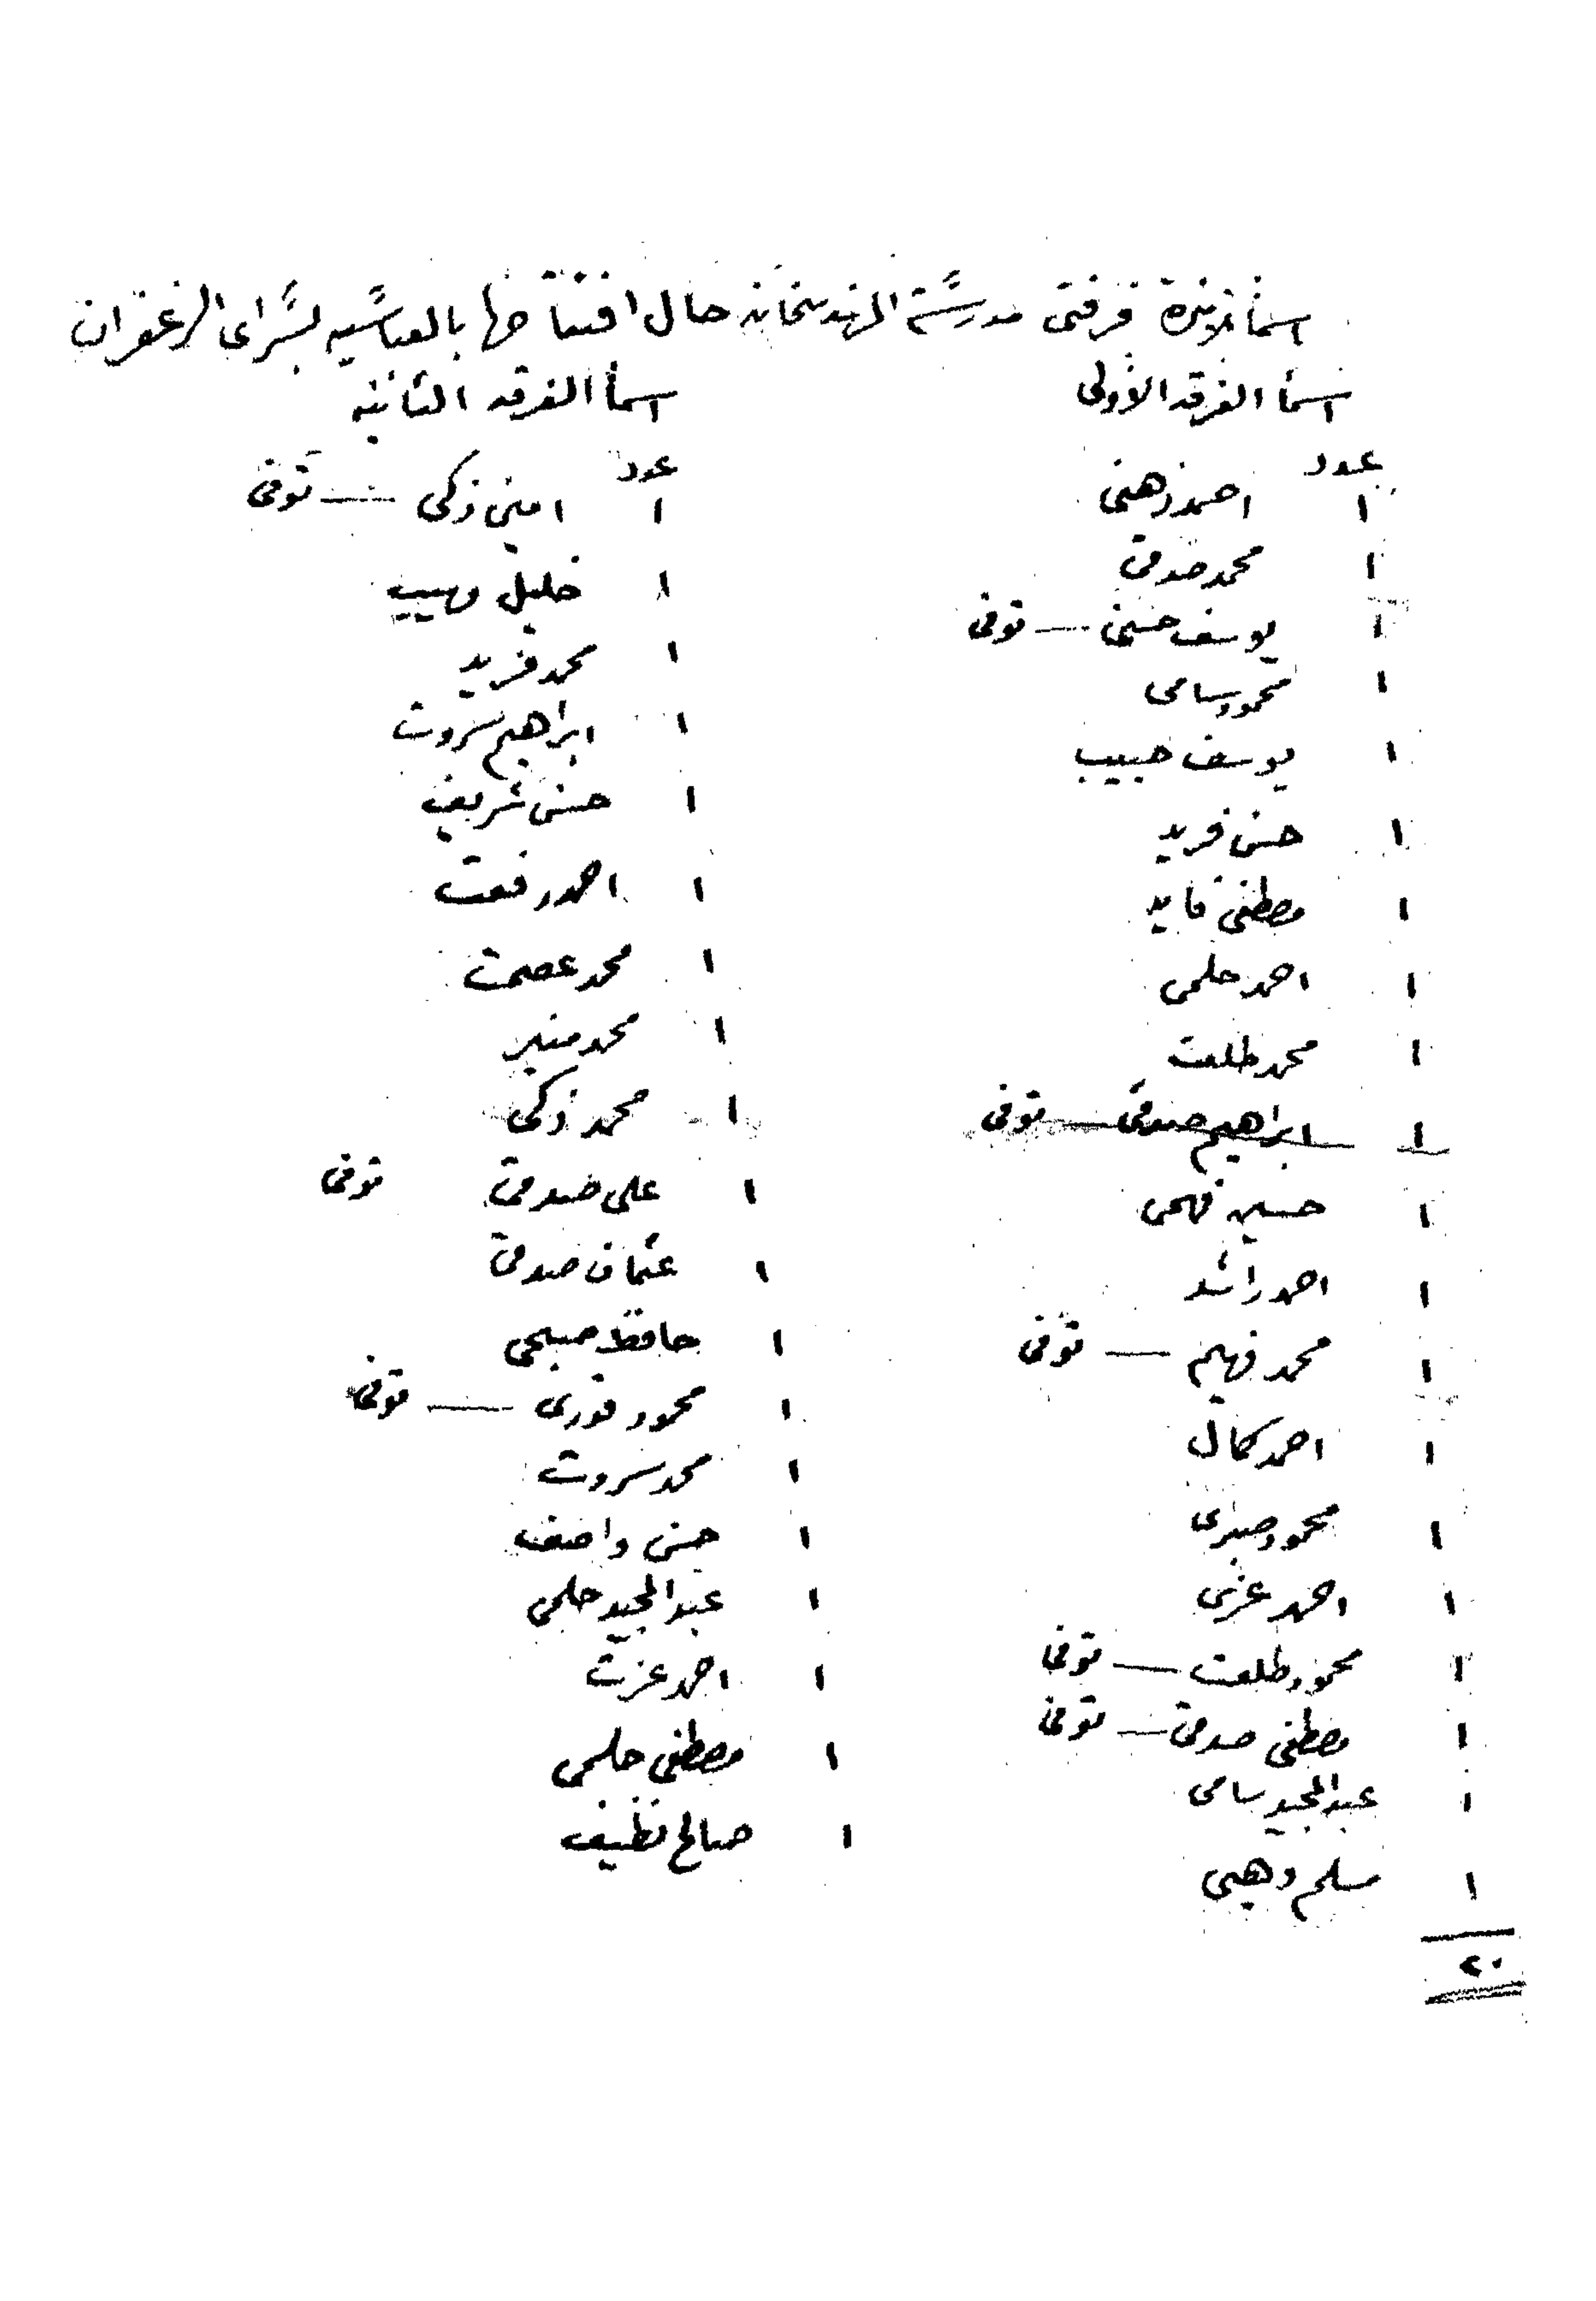 اسمأ تلامذة فرقتى مدرسة المهندسخانه حال افتتاحها بالعباسيه بسراى الزعفران
اسمأ الفرقه الأولى
عدد
١ احمد ذهنى
١ محمد صدقى
١ يوسف حسنى — توفى
١ محمود سامى
١ يوسف حبيب
١ حسن فريد
١ مصطفى فايد
١ احمد حلمى
١ محمد طلعت
١ ابراهيم صدقى — توفى
١ حسين فهمى
١ احمد راشد
١ محمد فهيم — توفى
١ احمد كمال
١ محمود صبرى
١ احمد عزمى
١ محمود طلعت — توفى
١ مصطفى صدقى — توفى
١ عبد المجيد سامى
١ مسلم وهبى
٢٠
اسمأ الفرقه الثانيه
عدد
١ امين زكى — توفى
١ خليل وهيب
١ محمد فريد
١ ابراهيم سروت
١ حسن شريف
١ احمد رفعت
١ محمد عصمت
١ محمد منير
١ محمد زكى
١ على صدقى توفى
١ عثمان صدقى
١ حافظ صبحى
١ محمود فوزى — توفى
١ محمد سروت
١ حسن واصف
١ عبد المجيد حلمى
١ احمد عزت
١ مصطفى حلمى
١ صالح نظيف